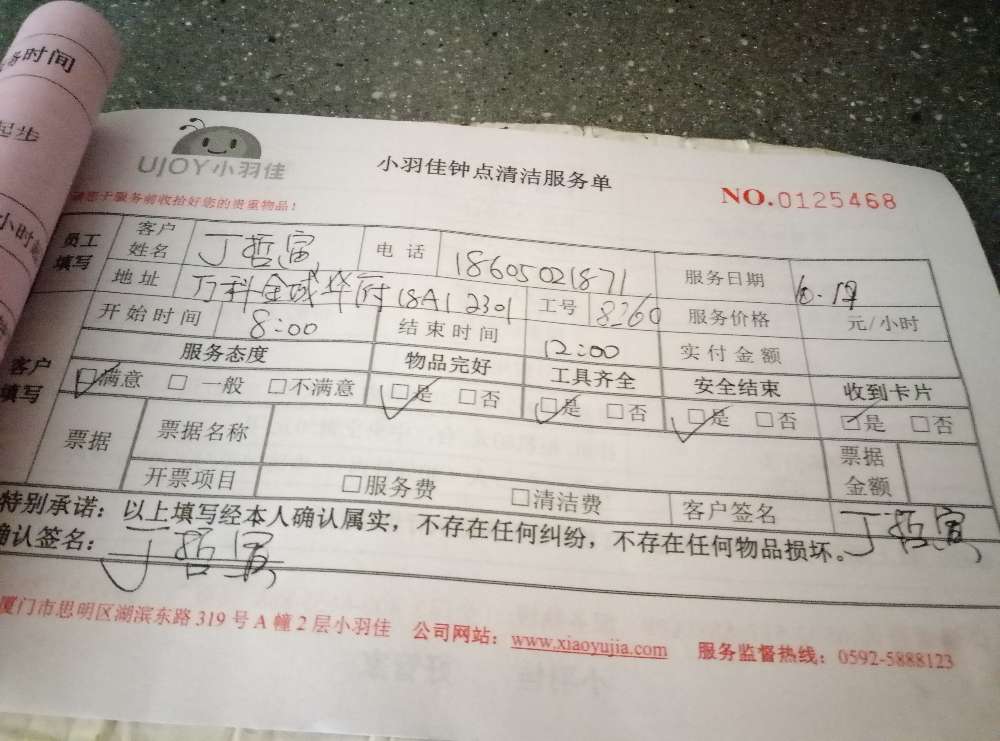 务时间
起步
小时
UJOY小羽佳
小羽佳钟点清洁服务单
NO.0125468
请您于服务前收拾好您的贵重物品！
员工填写 客户姓名 丁哲寅 电话 18605021871 服务日期 10.17
地址 万科金域华府18A1 2301 工号 8260 服务价格 元/小时
开始时间 8:00 结束时间 12:00 实付金额
客户填写 服务态度 物品完好 工具齐全 安全结束 收到卡片
☑满意 □一般 □不满意 ☑是 □否 ☑是 □否 ☑是 □否 ☑是 □否
票据 票据名称 票据金额
开票项目 □服务费 □清洁费 客户签名 丁哲寅
特别承诺：以上填写经本人确认属实，不存在任何纠纷，不存在任何物品损坏。
确认签名：丁哲寅
厦门市思明区湖滨东路319号A幢2层小羽佳 公司网站：www.xiaoyujia.com 服务监督热线：0592-5888123